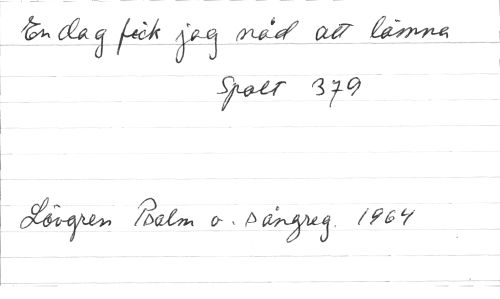 En dag fick jag nåd att lämna
Spalt 379
Lövgren Psalm o. sångreg. 1964